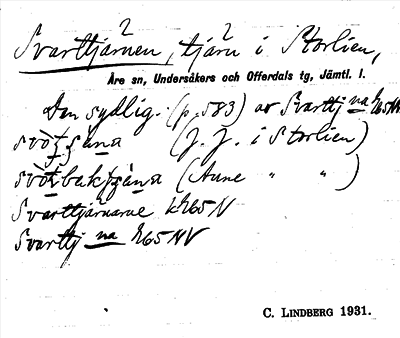 Svarttjärnen, tjärn i Storlien,
Åre sn, Undersåkers och Offerdals tg, Jämtl. l.
Den sydlig. (p. 583) av Svarttj na
(J. J. i Storlien)
(Aune " " )
Svarttjärnarne k265N
Svarttj na k65NV
C. LINDBERG 1931.